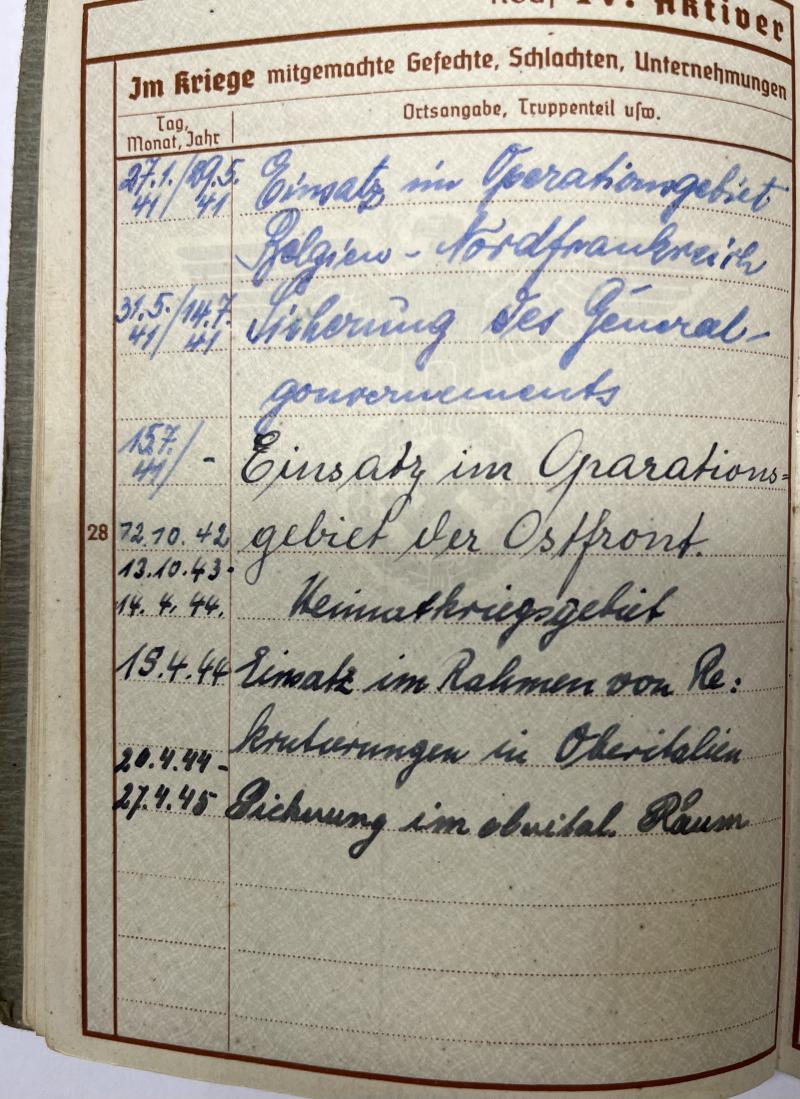 IV. Aktiver
Im Kriege mitgemachte Gefechte, Schlachten, Unternehmungen
Tag, Monat, Jahr
Ortsangabe, Truppenteil usw.
27.1./29.5. Einsatz im Operationsgebiet
41/41 Belgien - Nordfrankreich
31.5./14.7. Sicherung des General-
41/41 gouvernements
15.7./- Einsatz im Oparations=
41
28 12.10.42 gebiet der Ostfront.
13.10.43-
14.4.44. Heimatkriegsgebiet
19.4.44 Einsatz im Rahmen von Re:
krutierungen in Oberitalien
20.4.44-
27.4.45 Sicherung im oberital. Raum